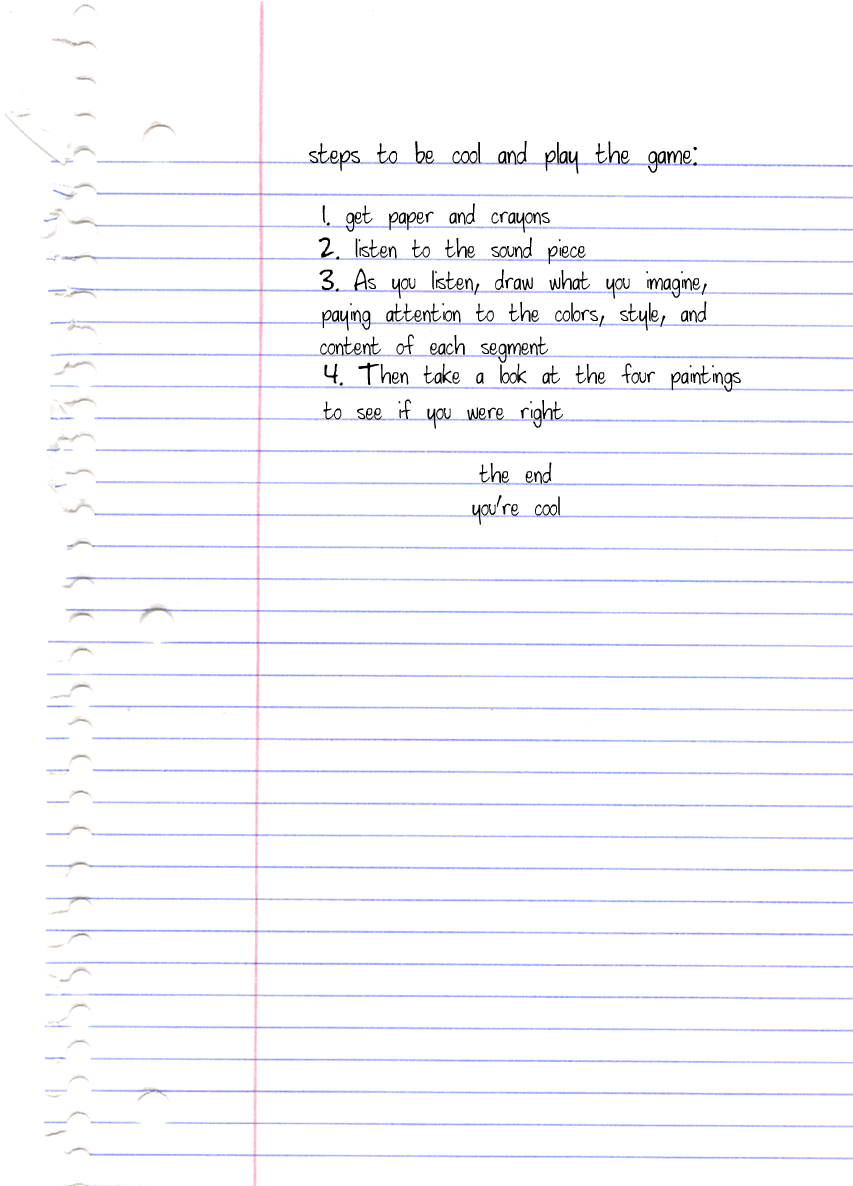 steps to be cool and play the game:
1. get paper and crayons
2. listen to the sound piece
3. As you listen, draw what you imagine,
paying attention to the colors, style, and
content of each segment
4. Then take a look at the four paintings
to see if you were right
the end
you're cool